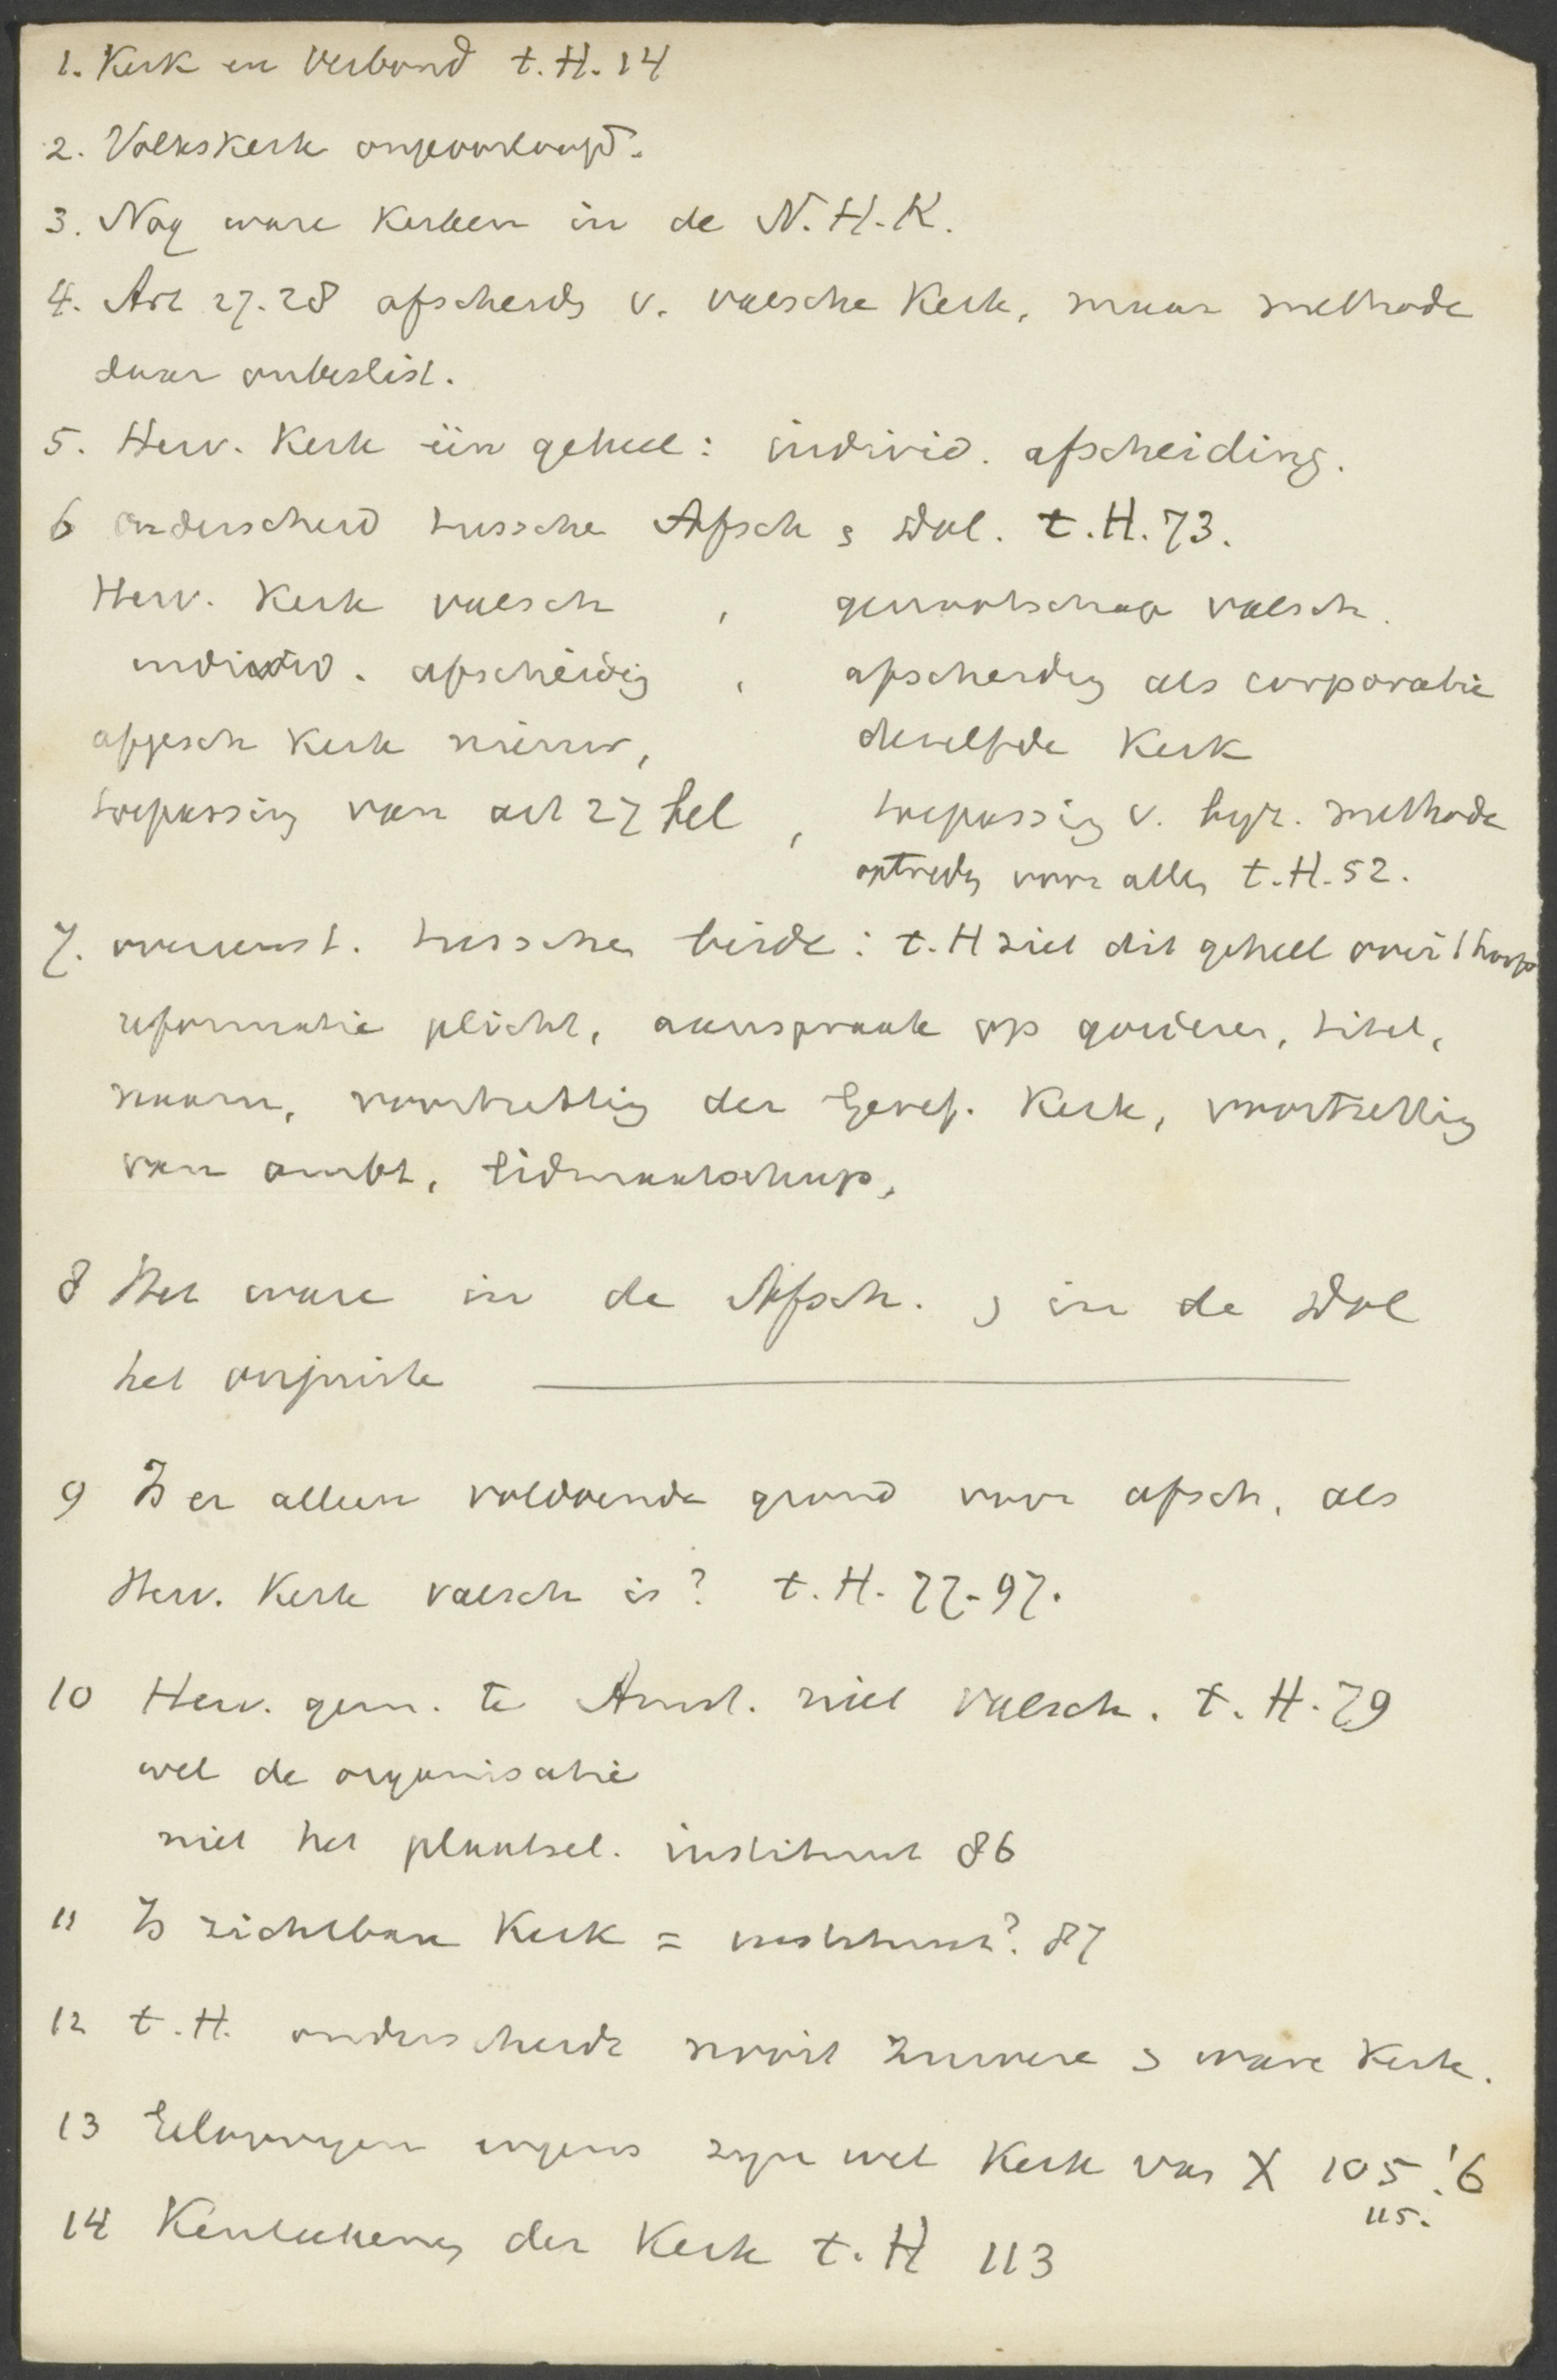 1. Kerk en Verband t.H. 14
2. Volkskerk ongeoorloofd.
3. Nog ware Kerken in de N.H.K.
4. Art 27.28 afscheidg v. valsche Kerk, maar methode
daar onbeslist.
5. Herv. Kerk één geheel: individ. afscheiding.
6 onderscheid tussche Afsch & Dol. t.H. 73.
Herv. Kerk valsch , genootschap valsch.
individ. afscheidig , afscheidig als corporatie
afgesch Kerk nieuw, dezelfde Kerk
toepassing van art 27 bel , toepassig v. byz. methode
optredg voor alles t.H. 52.
7. overeenst. tusschen beide: t.H ziet dit geheel over 't hoofd
reformatie plicht, aanspraak op goederen, titel,
naam, voortzettig der Geref. Kerk, voortzettig
van ambt, lidmaatschap,
8 Het ware in de Afsch. & in de Dol
het onjuiste
9 Is er alleen voldoende grond voor afsch. als
Herv. Kerk valsch is? t.H. 77-97.
10 Herv. gem. te Amst. niet valsch. t.H. 79
wel de organisatie
niet het plaatsel. instituut 86
11 Is zichtbare Kerk = instituut? 87
12 t.H. onderscheidt nooit zuivere & ware Kerk.
13 Geloovigen ergens zyn wel Kerk van X 105.'6
115.
14 Kenteekenen der Kerk t.H 113